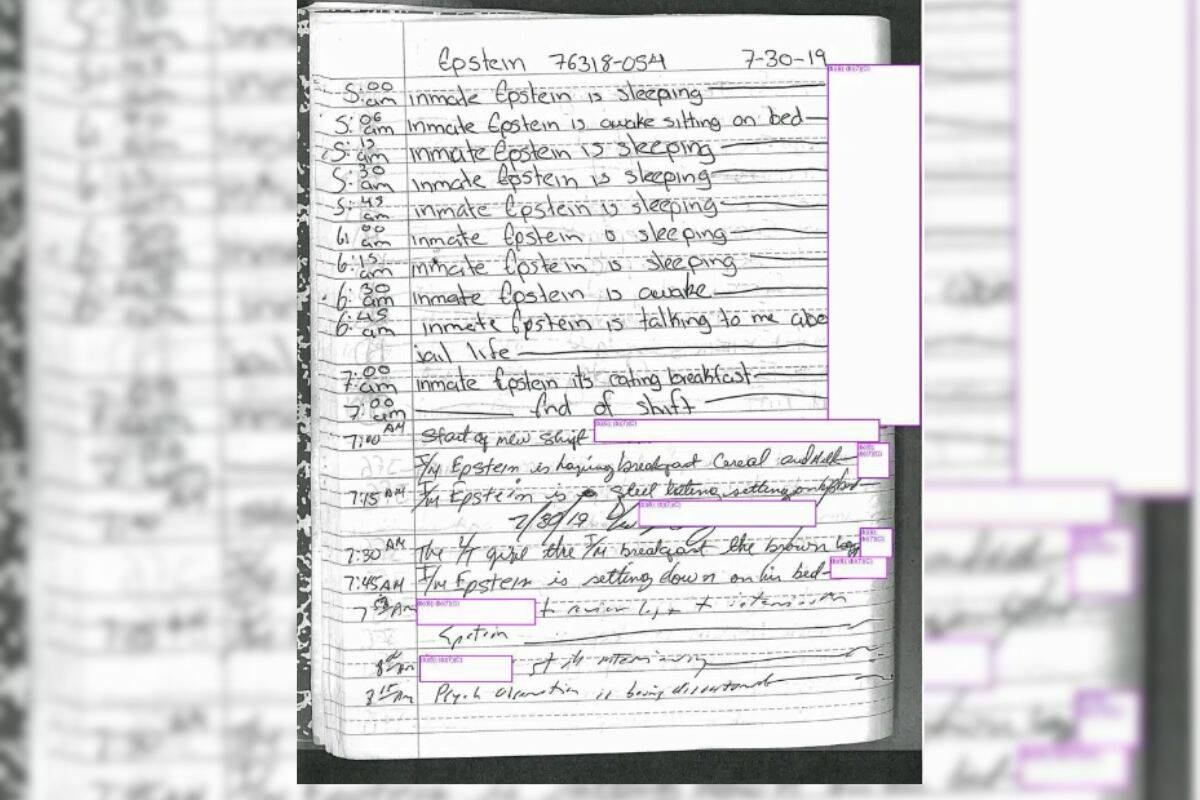 Epstein 76318-054 7-30-19
5:00 am inmate Epstein is sleeping
5:06 am inmate Epstein is awake sitting on bed
5:15 am inmate Epstein is sleeping
5:30 am inmate Epstein is sleeping
5:45 am inmate Epstein is sleeping
6:00 am inmate Epstein is sleeping
6:15 am inmate Epstein is sleeping
6:30 am inmate Epstein is awake
6:45 am inmate Epstein is talking to me abo
jail life
7:00 am inmate Epstein its eating breakfast
7:00 am End of shift
7:00 AM Start of new shift
I/M Epstein is having breakfast Cereal and Milk
7:15 AM I/M Epstein is still eating setting on his bed
7/30/19
7:30 AM The give the I/M breakfast the brown bag
7:45 AM I/M Epstein is setting down on his bed
AM to review log
Epstein
still interviewing
8:15 AM Psych observation is being discontinued